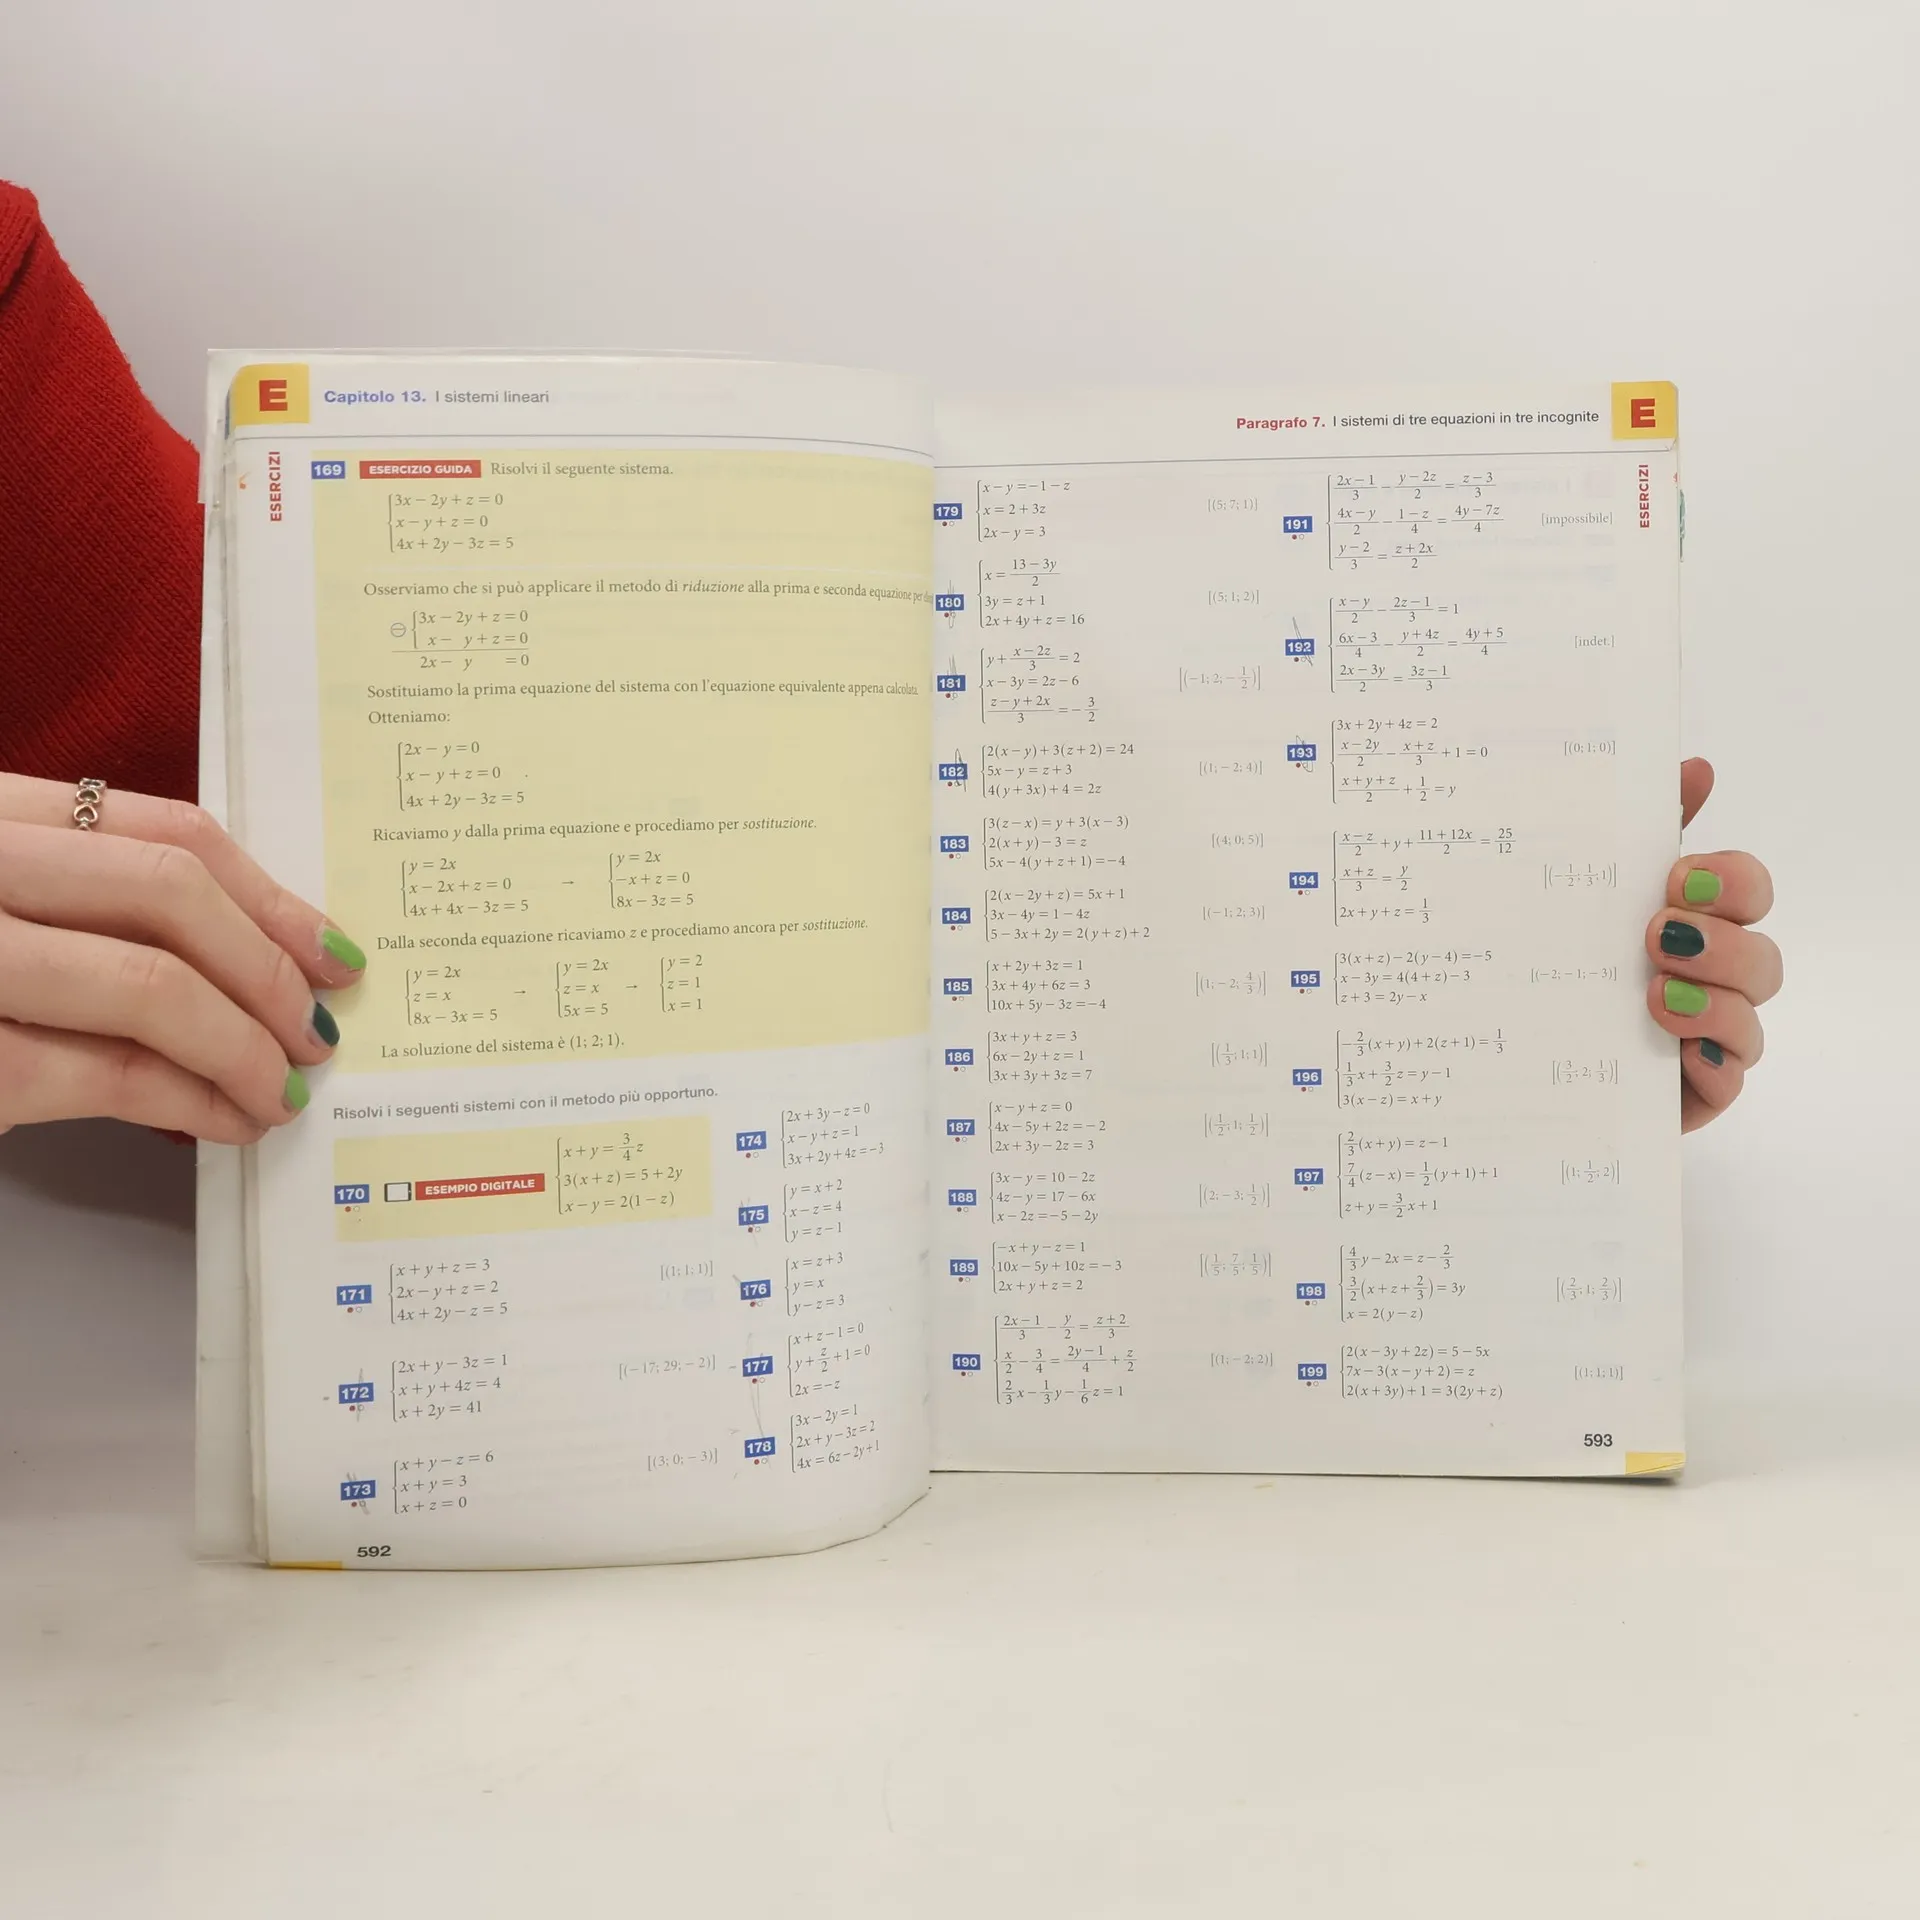 E
Capitolo 13. I sistemi lineari
ESERCIZI
169 ESERCIZIO GUIDA Risolvi il seguente sistema.
3x − 2y + z = 0
x − y + z = 0
4x + 2y − 3z = 5
Osserviamo che si può applicare il metodo di riduzione alla prima e seconda equazione per
⊖ 3x − 2y + z = 0
x − y + z = 0
2x − y = 0
Sostituiamo la prima equazione del sistema con l'equazione equivalente appena calcolata.
Otteniamo:
2x − y = 0
x − y + z = 0
4x + 2y − 3z = 5
Ricaviamo y dalla prima equazione e procediamo per sostituzione.
y = 2x → y = 2x
x − 2x + z = 0 −x + z = 0
4x + 4x − 3z = 5 8x − 3z = 5
Dalla seconda equazione ricaviamo z e procediamo ancora per sostituzione.
y = 2x → y = 2x → y = 2
z = x z = x z = 1
8x − 3x = 5 5x = 5 x = 1
La soluzione del sistema è (1; 2; 1).
Risolvi i seguenti sistemi con il metodo più opportuno.
170 ESEMPIO DIGITALE
x + y = 3/4 z
3(x + z) = 5 + 2y
x − y = 2(1 − z)
171
x + y + z = 3
2x − y + z = 2
4x + 2y − z = 5
[(1; 1; 1)]
172
2x + y − 3z = 1
x + y + 4z = 4
x + 2y = 41
[(−17; 29; −2)]
173
x + y − z = 6
x + y = 3
x + z = 0
[(3; 0; −3)]
174
2x + 3y − z = 0
x − y + z = 1
3x + 2y + 4z = −3
175
y = x + 2
x − z = 4
y = z − 1
176
x = z + 3
y = x
y − z = 3
177
x + z − 1 = 0
y + z/2 + 1 = 0
2x = −z
178
3x − 2y = 1
2x + y − 3z = 2
4x = 6z − 2y + 1
592
Paragrafo 7. I sistemi di tre equazioni in tre incognite
E
ESERCIZI
179
x − y = −1 − z
x = 2 + 3z
2x − y = 3
[(5; 7; 1)]
180
x = (13 − 3y)/2
3y = z + 1
2x + 4y + z = 16
[(5; 1; 2)]
181
y + (x − 2z)/3 = 2
x − 3y = 2z − 6
(z − y + 2x)/3 = −3/2
[(−1; 2; −1/2)]
182
2(x − y) + 3(z + 2) = 24
5x − y = z + 3
4(y + 3x) + 4 = 2z
[(1; −2; 4)]
183
3(z − x) = y + 3(x − 3)
2(x + y) − 3 = z
5x − 4(y + z + 1) = −4
[(4; 0; 5)]
184
2(x − 2y + z) = 5x + 1
3x − 4y = 1 − 4z
5 − 3x + 2y = 2(y + z) + 2
[(−1; 2; 3)]
185
x + 2y + 3z = 1
3x + 4y + 6z = 3
10x + 5y − 3z = −4
[(1; −2; 4/3)]
186
3x + y + z = 3
6x − 2y + z = 1
3x + 3y + 3z = 7
[(1/3; 1; 1)]
187
x − y + z = 0
4x − 5y + 2z = −2
2x + 3y − 2z = 3
[(1/2; 1; 1/2)]
188
3x − y = 10 − 2z
4z − y = 17 − 6x
x − 2z = −5 − 2y
[(2; −3; 1/2)]
189
−x + y − z = 1
10x − 5y + 10z = −3
2x + y + z = 2
[(1/5; 7/5; 1/5)]
190
(2x − 1)/3 − y/2 = (z + 2)/3
x/2 − 3/4 = (2y − 1)/4 + z/2
2/3 x − 1/3 y − 1/6 z = 1
[(1; −2; 2)]
191
(2x − 1)/3 − (y − 2z)/2 = (z − 3)/3
(4x − y)/2 − (1 − z)/4 = (4y − 7z)/4
(y − 2)/3 = (z + 2x)/2
[impossibile]
192
(x − y)/2 − (2z − 1)/3 = 1
(6x − 3)/4 − (y + 4z)/2 = (4y + 5)/4
(2x − 3y)/2 = (3z − 1)/3
[indet.]
193
3x + 2y + 4z = 2
(x − 2y)/2 − (x + z)/3 + 1 = 0
(x + y + z)/2 + 1/2 = y
[(0; 1; 0)]
194
(x − z)/2 + y + (11 + 12x)/2 = 25/12
(x + z)/3 = y/2
2x + y + z = 1/3
[(−1/2; 1/3; 1)]
195
3(x + z) − 2(y − 4) = −5
x − 3y = 4(4 + z) − 3
z + 3 = 2y − x
[(−2; −1; −3)]
196
−2/3 (x + y) + 2(z + 1) = 1/3
1/3 x + 3/2 z = y − 1
3(x − z) = x + y
[(3/2; 2; 1/3)]
197
2/3 (x + y) = z − 1
7/4 (z − x) = 1/2 (y + 1) + 1
z + y = 3/2 x + 1
[(1; 1/2; 2)]
198
4/3 y − 2x = z − 2/3
3/2 (x + z + 2/3) = 3y
x = 2(y − z)
[(2/3; 1; 2/3)]
199
2(x − 3y + 2z) = 5 − 5x
7x − 3(x − y + 2) = z
2(x + 3y) + 1 = 3(2y + z)
[(1; 1; 1)]
593